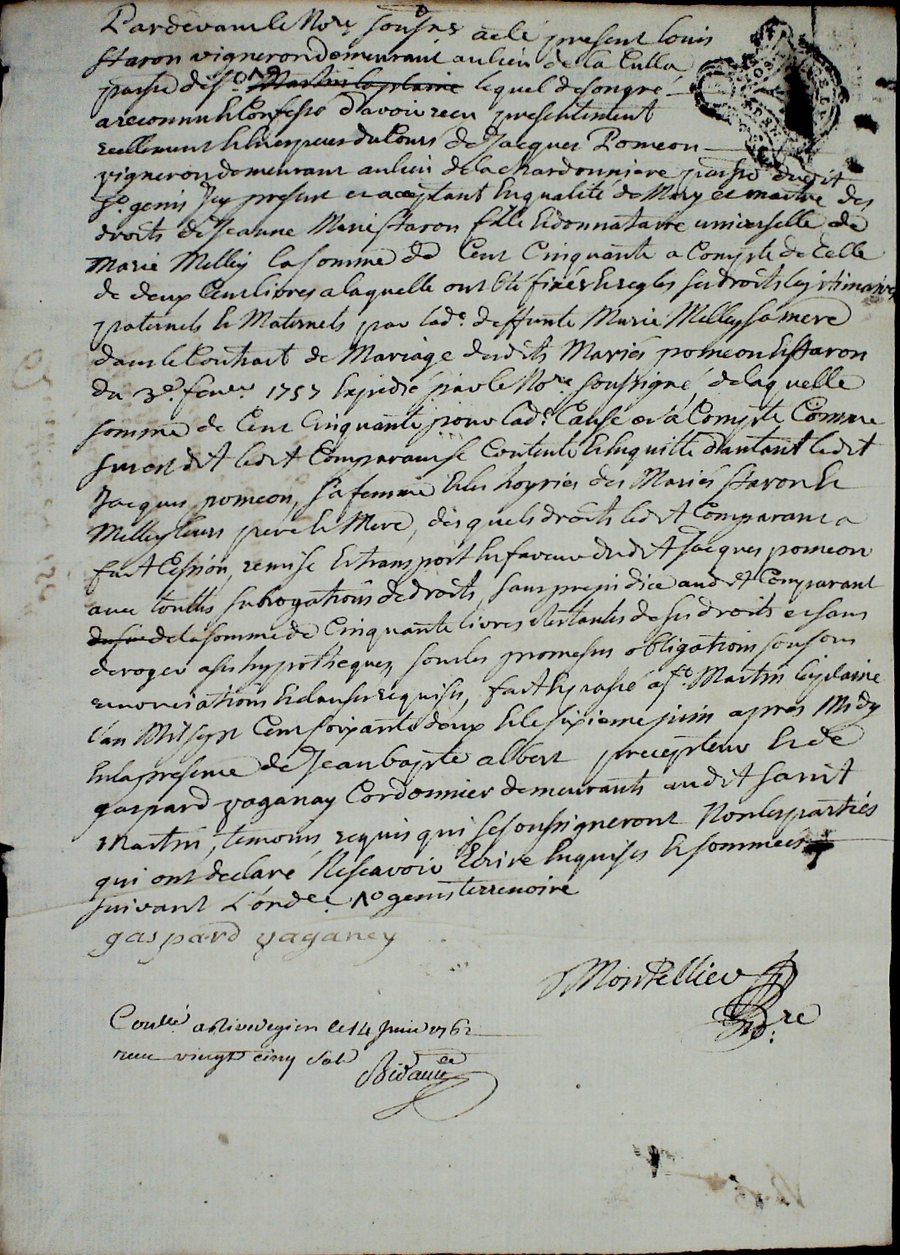 Pardevant le No.re sous.né a eté present louis
staron vigneron demeurant au lieu de la Culla
parsse de s.t Martin laplaine lequel de son gré
a reconnu et Confessé d'avoir reçu presentement
reellement et en especes du Cours de Jacques Pomeon
vigneron demeurant au lieu de la chardonniere parsse dudit
s.t genis Icy present et acceptant En qualité de Mary et maitre des
droits de Jeanne Marie staron fille Et donnataire universelle de
Marie Milley la somme de Cent Cinquante a Compte de Celle
de deux Cent livres a laquelle ont Eté fixés et regles ses droits legitimaires
paternels et Maternels par lad.e deffunte Marie Milley sa mere
dans le Contract de Mariage desdits Mariés pomeon et staron
du 3.e fev.er 1757 Expedié par le No.re soussigné de laquelle
somme de Cent Cinquante pour lad.e Cause et a Compte Comme
sus est dit ledit Comparant se Contente et En quitte d'autant ledit
Jacques pomeon, sa femme et les hoyries des Mariés staron et
Milley leurs pere et Mere, desquels droits ledit Comparant a
fait Cession, remise et transport En faveur dudit Jacques pomeon
avec touttes subrogations de droits, sans prejudice audit Comparant
de la somme de Cinquante livres restantes de ses droits et sans
deroger a ses hypotheques, sous les promesses obligations
renonciations et clauses requises, fait et passé a s.t Martin laplaine
l'an Mil sept Cent soixante deux et le sixieme juin apres Midy
En la presence de Jean bapte albert precepteur Et de
gaspard vaganay Cordonnier demeurants audit saint
Martin, temoins requis qui se soussigneront Non les parties
qui ont declaré Ne scavoir Ecrire Enquises et sommées
suivant L'ord.e s.t genis terrenoire
gaspard vaganey
Montellier
No.re
Con.lé a Rivedegier le 14 juin 1762
reçu vingt cinq sols